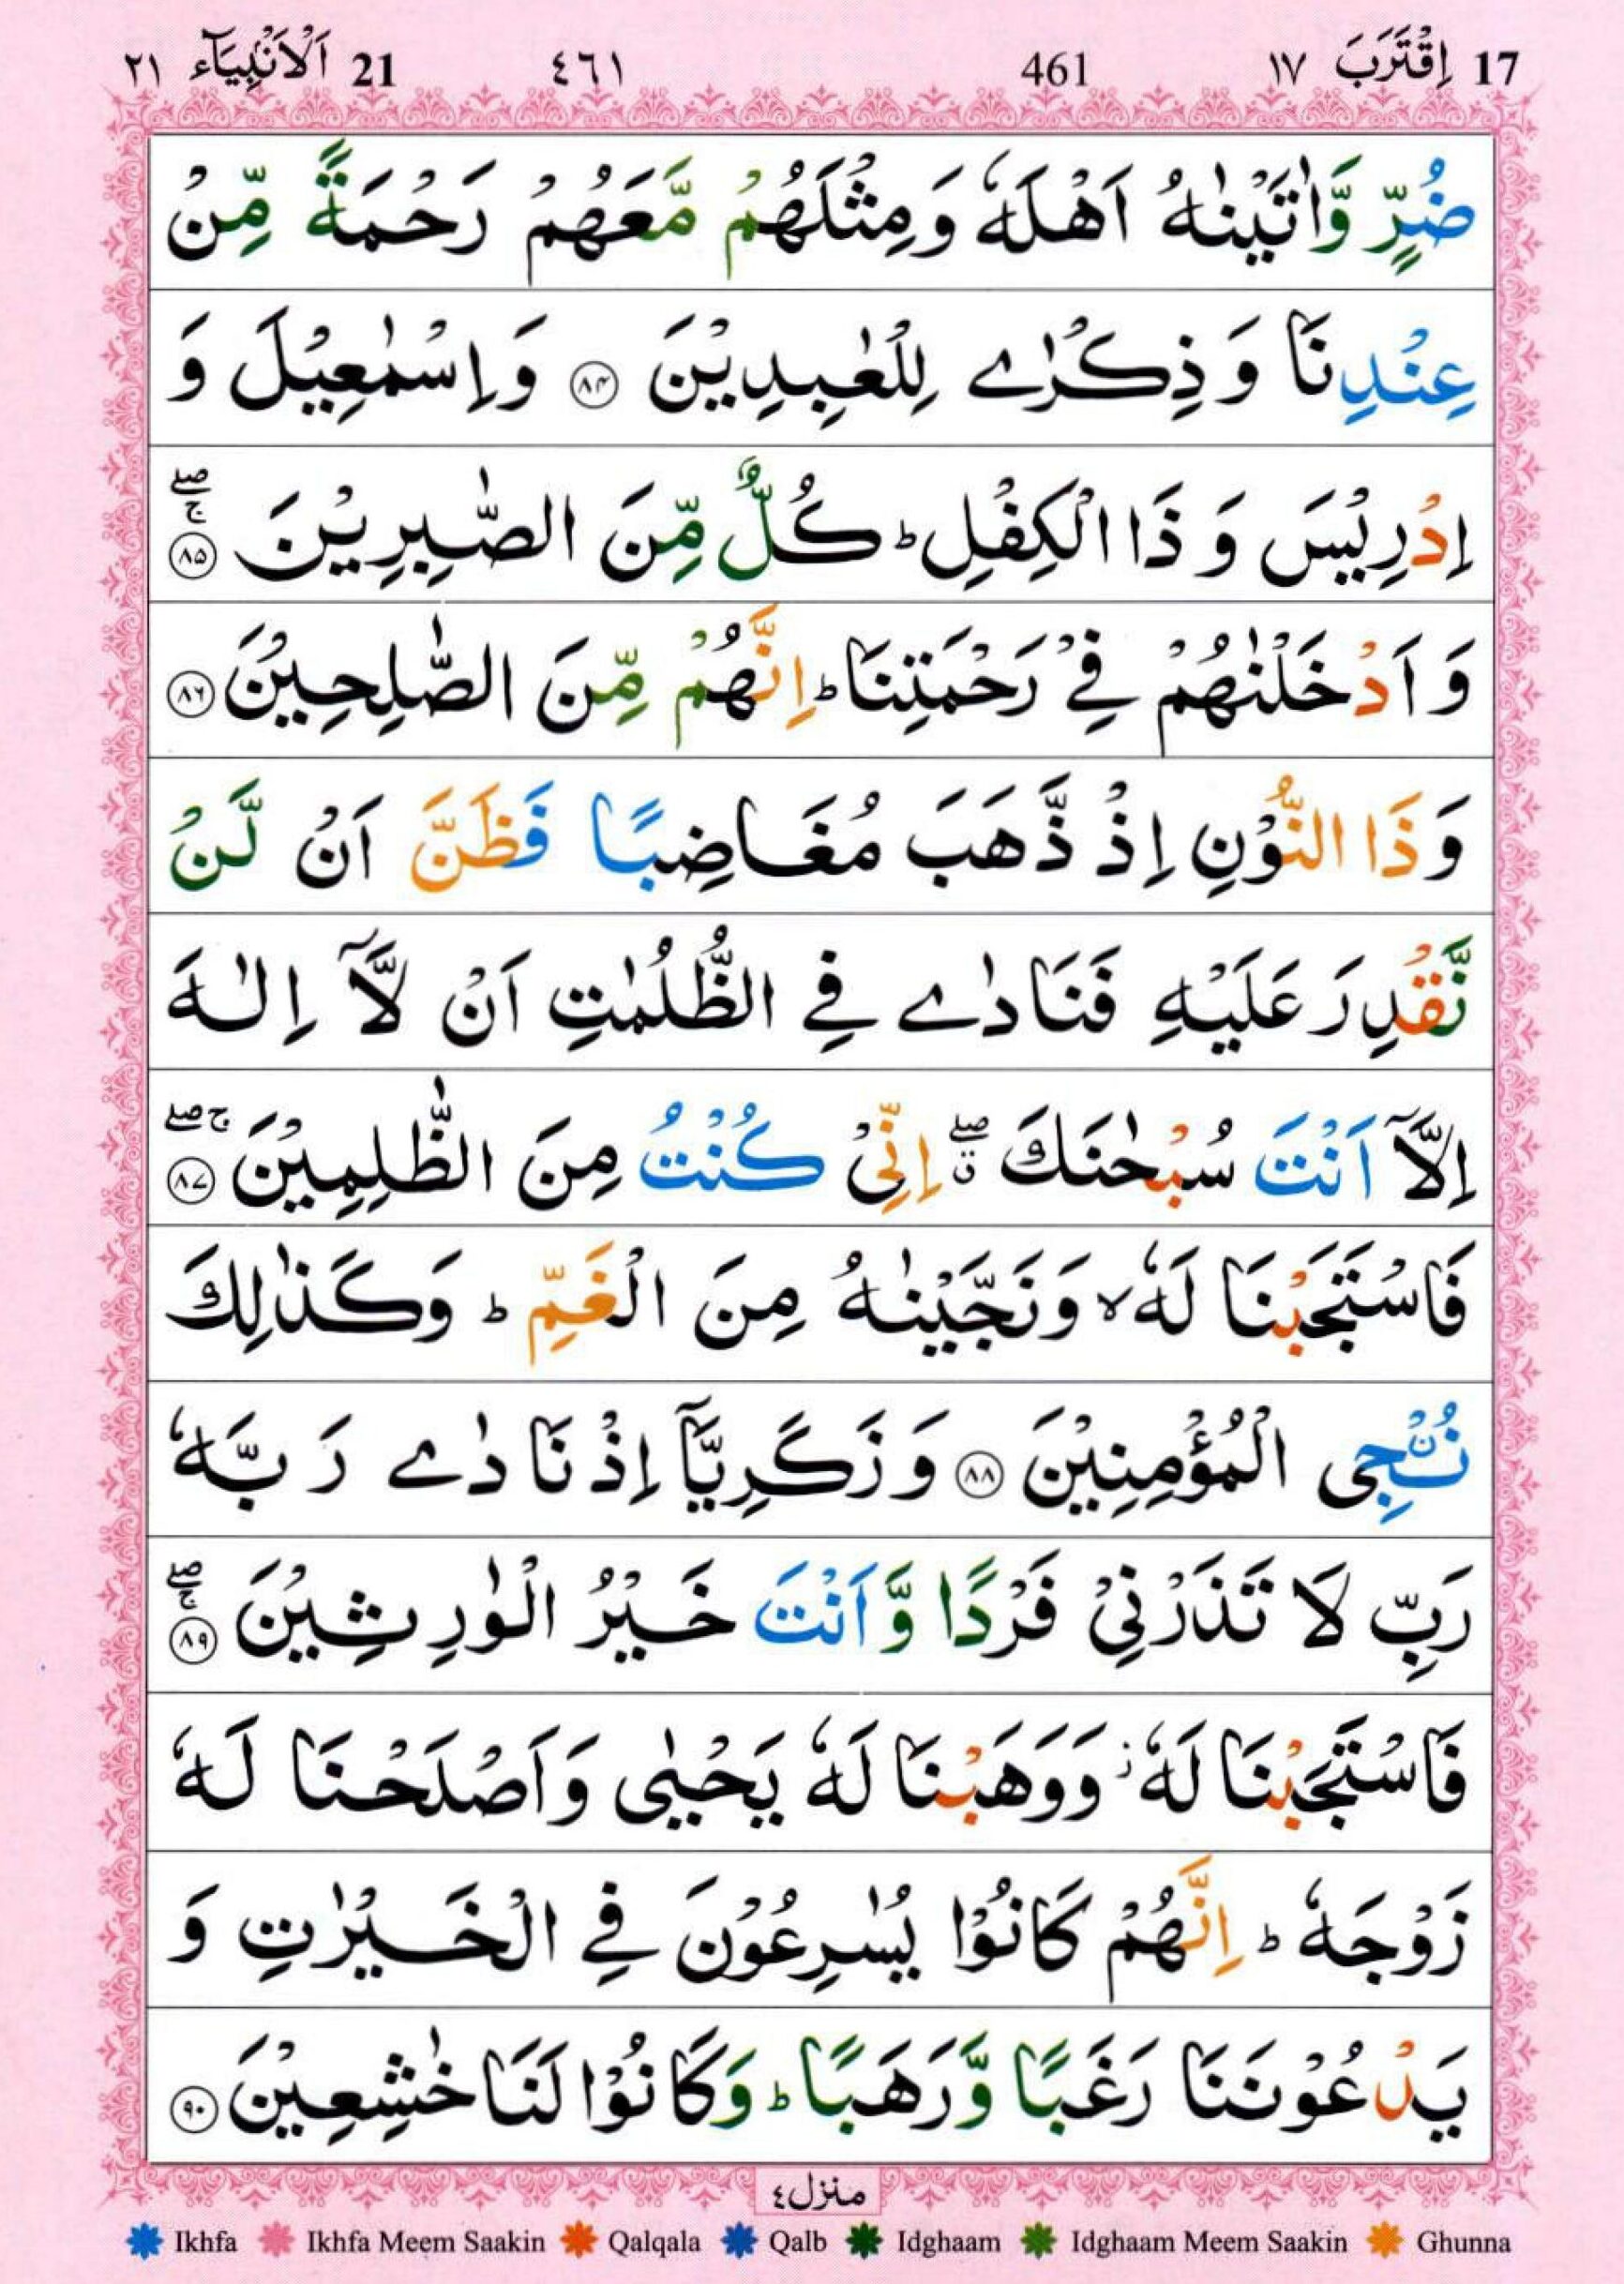 17 اِقْتَرَبَ ١٧ 461 ٤٦١ 21 اَلْاَنْۢبِيَآء ٢١
ضُرٍّ وَّاٰتَيْنٰهُ اَهْلَهٗ وَمِثْلَهُمْ مَّعَهُمْ رَحْمَةً مِّنْ
عِنْدِنَا وَ ذِكْرٰے لِلْعٰبِدِيْنَ ۝٨٤ وَاِسْمٰعِيْلَ وَ
اِدْرِيْسَ وَ ذَا الْكِفْلِ ؕ كُلٌّ مِّنَ الصّٰبِرِيْنَ ۝٨٥ ۚۖ
وَ اَدْخَلْنٰهُمْ فِيْ رَحْمَتِنَا ؕ اِنَّهُمْ مِّنَ الصّٰلِحِيْنَ ۝٨٦
وَذَا النُّوْنِ اِذْ ذَّهَبَ مُغَاضِبًا فَظَنَّ اَنْ لَّنْ
نَّقْدِرَ عَلَيْهِ فَنَادٰے فِے الظُّلُمٰتِ اَنْ لَّاۤ اِلٰهَ
اِلَّاۤ اَنْتَ سُبْحٰنَكَ ۖۗ اِنِّيْ كُنْتُ مِنَ الظّٰلِمِيْنَ ۝٨٧ ۚۖ
فَاسْتَجَبْنَا لَهٗ ۙ وَنَجَّيْنٰهُ مِنَ الْغَمِّ ؕ وَكَذٰلِكَ
نُـْۨجِی الْمُؤْمِنِيْنَ ۝٨٨ وَ زَكَرِيَّاۤ اِذْ نَادٰے رَبَّهٗ
رَبِّ لَا تَذَرْنِيْ فَرْدًا وَّاَنْتَ خَيْرُ الْوٰرِثِيْنَ ۝٨٩ ۚۖ
فَاسْتَجَبْنَا لَهٗ ز وَوَهَبْنَا لَهٗ يَحْيٰى وَاَصْلَحْنَا لَهٗ
زَوْجَهٗ ؕ اِنَّهُمْ كَانُوْا يُسٰرِعُوْنَ فِے الْخَيْرٰتِ وَ
يَدْعُوْنَنَا رَغَبًا وَّرَهَبًا ؕ وَكَانُوْا لَنَا خٰشِعِيْنَ ۝٩٠
منزل٤
Ikhfa Ikhfa Meem Saakin Qalqala Qalb Idghaam Idghaam Meem Saakin Ghunna